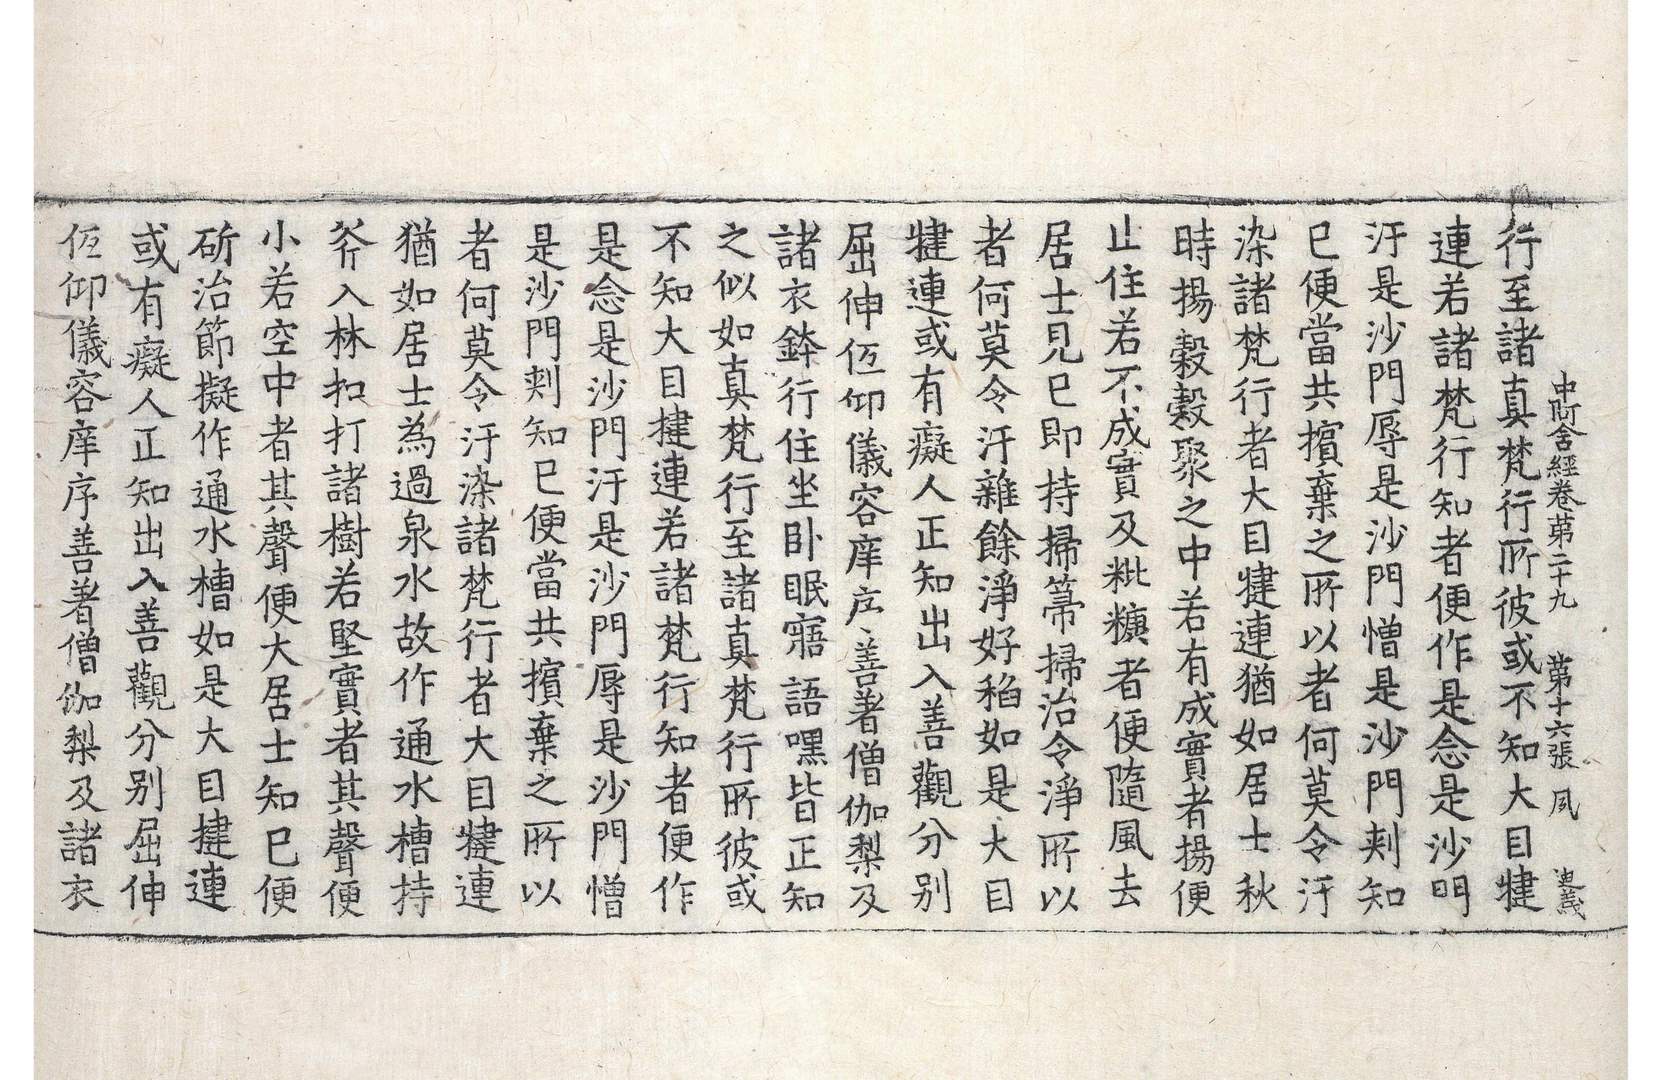 中阿含經卷第二十九　第十六張　夙　迪義
行至諸真梵行所彼或不知大目揵
連若諸梵行知者便作是念是沙門
汙是沙門辱是沙門憎是沙門刾知
已便當共擯棄之所以者何莫令汙
染諸梵行者大目揵連猶如居士秋
時揚穀穀聚之中若有成實者揚便
止住若不成實及粃糠者便隨風去
居士見已即持掃箒掃治令淨所以
者何莫令汙雜餘淨好稻如是大目
揵連或有癡人正知出入善觀分别
屈伸仾仰儀容庠序善著僧伽梨及
諸衣鉢行住坐卧眠寤語嘿皆正知
之似如真梵行至諸真梵行所彼或
不知大目揵連若諸梵行知者便作
是念是沙門汙是沙門辱是沙門憎
是沙門刾知已便當共擯棄之所以
者何莫令汙染諸梵行者大目揵連
猶如居士為過泉水故作通水槽持
斧入林扣打諸樹若堅實者其聲便
小若空中者其聲便大居士知已便
斫治節擬作通水槽如是大目揵連
或有癡人正知出入善觀分别屈伸
仾仰儀容庠序善著僧伽梨及諸衣